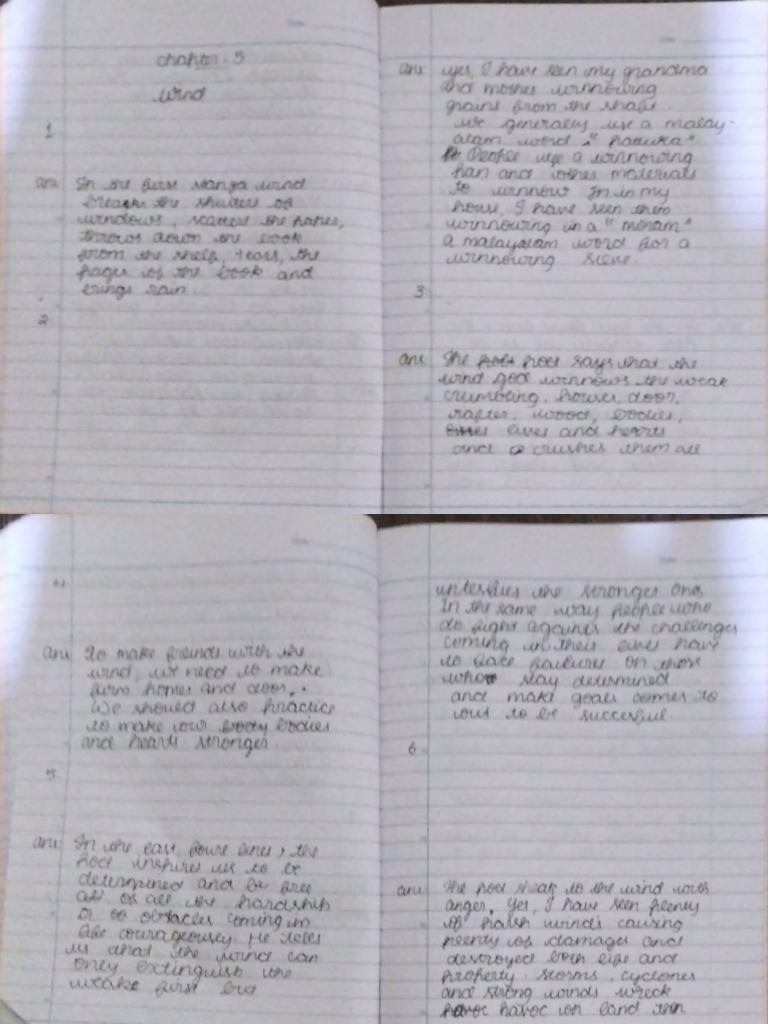 Chapter 5
Wind
1
ans In the first stanza wind
breaks the shutters of
windows, scatters the papes,
throws down the book
from the shelf, tears, the
pages of the book and
brings rain.
2
ans yes, I have seen my grandma
and mother winnowing
grains from the shafs.
we generally use a malay-
alam word "
People use a winnowing
fan and other materials
to winnow In in my
house, I have seen them
winnowing in a "moram"
a malayalam word for a
winnowing sieve.
3
ans The poet poet says that the
wind god winnows the weak
crumbling, houses, door,
rafter, wood, bodies,
lives and hearts
and crushes them all
4
ans To make freinds with the
wind, we need to make
firm homes and door,.
We should also practice
to make our body bodies
and hearts stronger.
5
ans In the last four lines, the
poet inspires us to be
determined and be free
all of all the hardship
or to obstacles coming in
life courageously. He tells
us that the wind can
only extinguish the
weake first but
intesifies the stronger ones
In the same way people who
do fight againts the challenges
coming in their lives have
to face failures on those
who stay determined
and make goals comes to
out to be succesful
6
ans The poet speak to the wind with
anger, Yes, I have seen plenty
of harsh winds causing
plenty of damages and
destroyed both life and
property. storms, cyclones
and strong winds wreck
havoc havoc on land